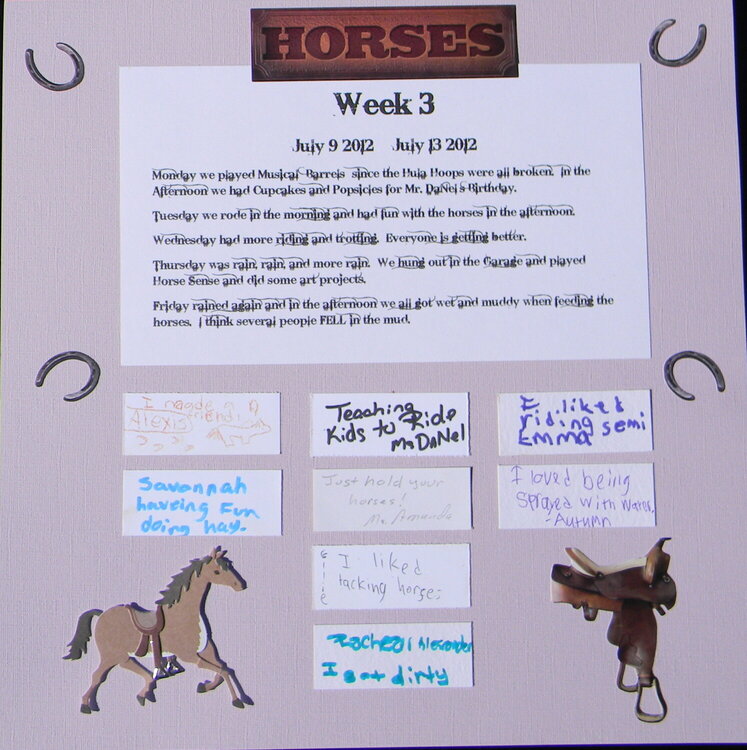 HORSES
Week 3
July 9 2012 July 13 2012
Monday we played Musical Barrels since the Hula Hoops were all broken. In the
Afternoon we had Cupcakes and Popsicles for Mr. DaNel's Birthday.
Tuesday we rode in the morning and had fun with the horses in the afternoon.
Wednesday had more riding and trotting. Everyone is getting better.
Thursday was rain, rain, and more rain. We hung out in the Garage and played
Horse Sense and did some art projects.
Friday rained again and in the afternoon we all got wet and muddy when feeding the
horses. I think several people FELL in the mud.
I made a
friend!
Alexis
Teaching
Kids to Ride
Ms DaNel
I liked
riding semi
Emma
Savannah
haveing Fun
doing hay.
Just hold your
horses!
Ms. Amanda
I loved being
Sprayed with water.
-Autumn
I liked
tacking horses
Racheal Alexander
I got dirty